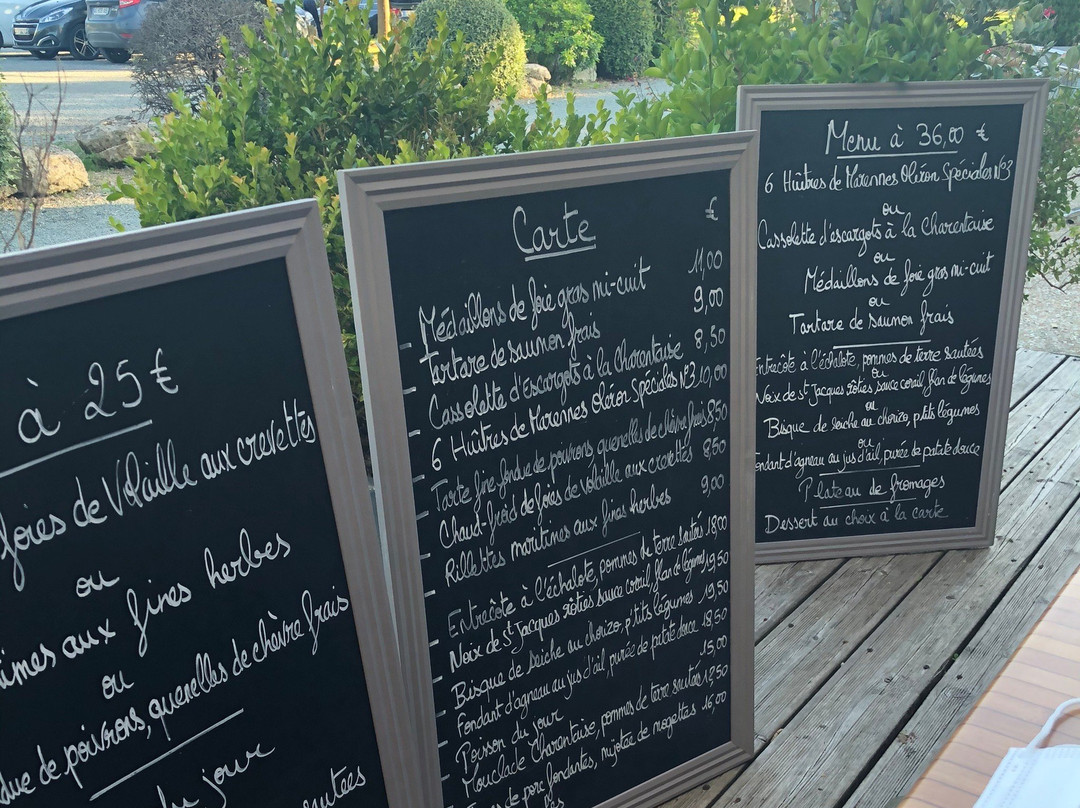 à 25 €
foies de Volaille aux crevettes
ou
aux fines herbes
ou
de poivrons, quenelles de chèvre frais
jour
Carte €
- Médaillons de foie gras mi-cuit 11,00
- Tartare de saumon frais 9,00
- Cassolette d'Escargots à la Charentaise 8,50
- 6 Huîtres de Marennes Oléron Spéciales N°3 10,00
- Tarte fine fondue de poivrons quenelles de chèvre frais 8,50
- Chaud-froid de foies de volaille aux crevettes 8,50
- Rillettes maritimes aux fines herbes 9,00
- Entrecôte à l'échalote, pommes de terre sautés 18,00
- Noix de St Jacques rôties sauce corail, flan de légumes 19,50
- Bisque de seiche au chorizo, p'tits légumes 19,50
- Fondant d'agneau au jus d'ail, purée de patate douce 18,50
- Poisson du jour 15,00
- Mouclade Charentaise, pommes de terre sautés
de porc fondantes, mijotée de mogettes 16,00
Menu à 36,00 €
6 Huîtres de Marennes Oléron Spéciales N°3
ou
Cassolette d'escargots à la Charentaise
ou
Médaillons de foie gras mi-cuit
ou
Tartare de saumon frais
Entrecôte à l'échalote, pommes de terre sautées
ou
Noix de St Jacques rôties sauce corail, flan de légumes
ou
Bisque de seiche au chorizo, p'tits légumes
ou
Fondant d'agneau au jus d'ail, purée de patate douce
Plateau de fromages
Dessert au choix à la carte